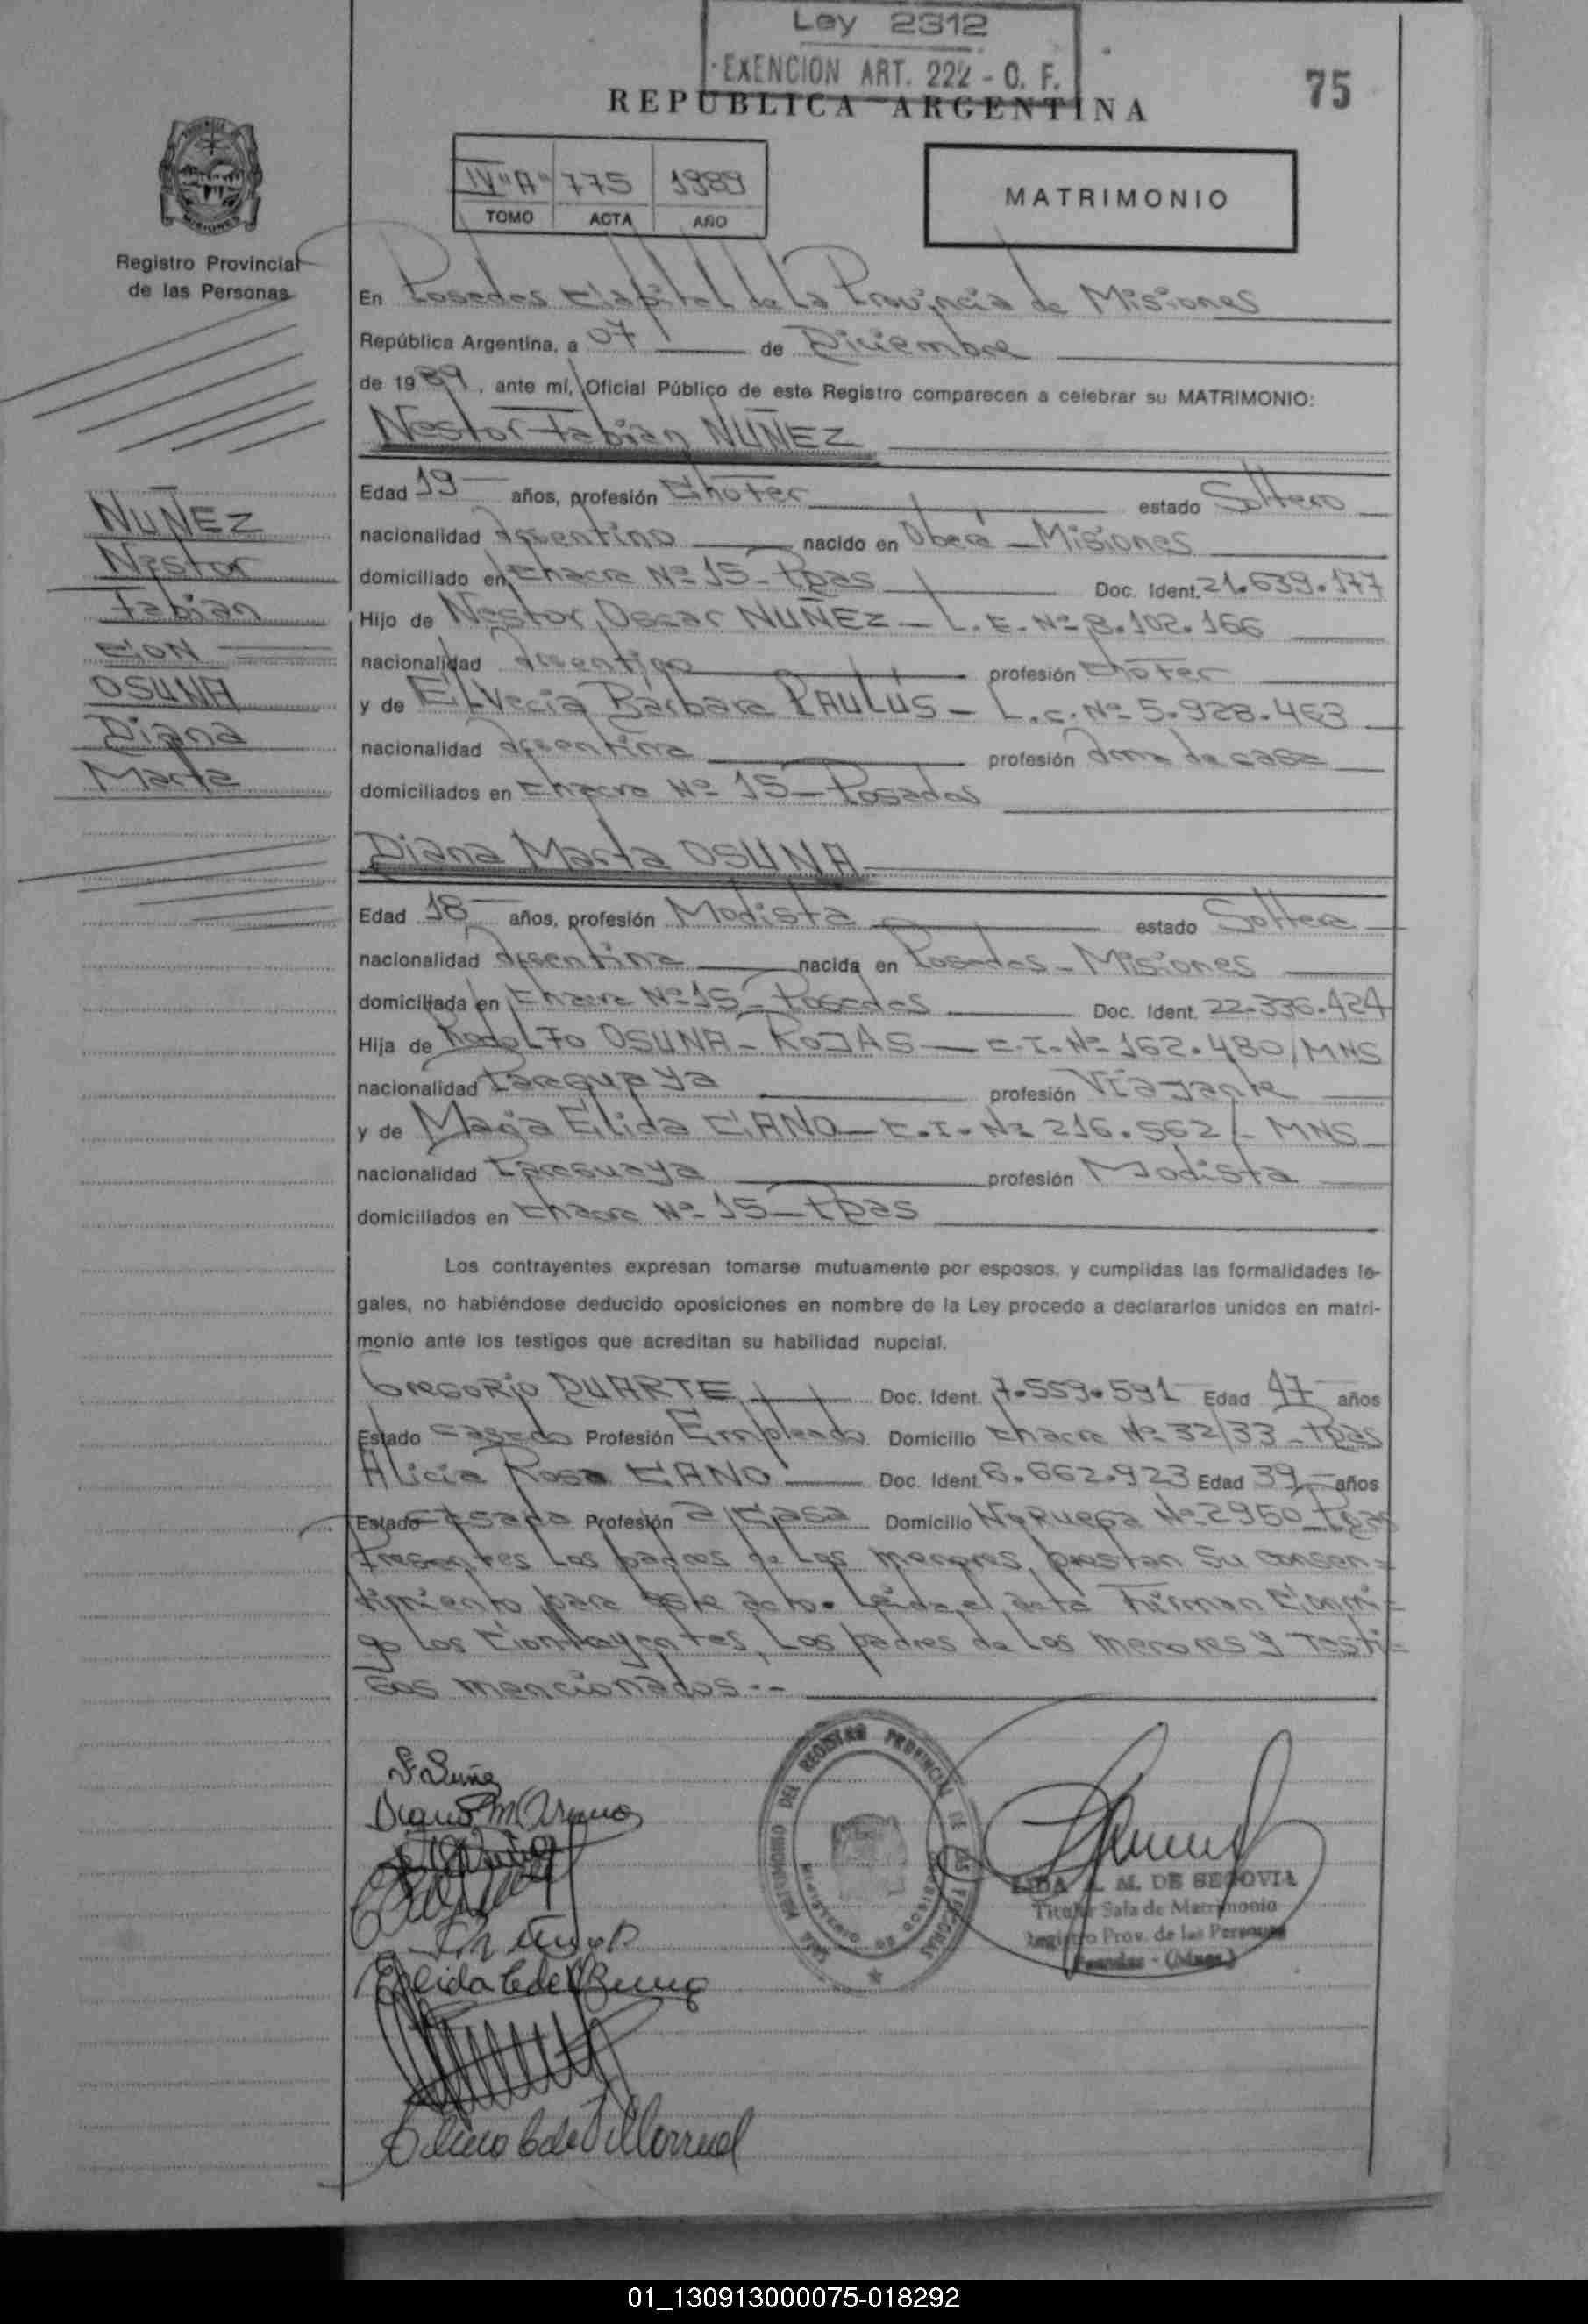 Ley 2312
EXENCION ART. 222 - C. F.
75
REPUBLICA ARGENTINA
IV "A" 775 1989
TOMO ACTA AÑO
MATRIMONIO
Registro Provincial
de las Personas
En Posadas Capital de La Provincia de Misiones
República Argentina, a 07 de Diciembre
de 1989, ante mí, Oficial Público de este Registro comparecen a celebrar su MATRIMONIO:
Nestor Fabián NUÑEZ
Edad 19 años, profesión Chofer estado Soltero
nacionalidad Argentino nacido en Oberá - Misiones
domiciliado en Chacra Nº 15 - Pdas Doc. Ident. 21.639.177
Hijo de Nestor Oscar NUÑEZ - L.E. Nº 8.102.166
nacionalidad Argentino profesión Chofer
y de Elvecia Bárbara PAULUS - L.C. Nº 5.928.463
nacionalidad Argentina profesión Ama de casa
domiciliados en Chacra Nº 15 - Posadas
Diana Marta OSUNA
Edad 18 años, profesión Modista estado Soltera
nacionalidad Argentina nacida en Posadas - Misiones
domiciliada en Chacra Nº 15 - Posadas Doc. Ident. 22.336.424
Hija de Rodolfo OSUNA - ROJAS - C.I. Nº 162.480/MNS
nacionalidad Paraguaya profesión Viajante
y de María Elida CANO - C.I. Nº 216.562/- MNS
nacionalidad Paraguaya profesión Modista
domiciliados en Chacra Nº 15 - Pdas
NUÑEZ
Nestor
Fabián
CON
OSUNA
Diana
Marta
Los contrayentes expresan tomarse mutuamente por esposos, y cumplidas las formalidades le-
gales, no habiéndose deducido oposiciones en nombre de la Ley procedo a declararlos unidos en matri-
monio ante los testigos que acreditan su habilidad nupcial.
Gregorio DUARTE Doc. Ident. 7.559.591 Edad 47 años
Estado Casado Profesión Empleado Domicilio Chacra Nº 32/33 - Pdas
Alicia Rosa CANO Doc. Ident. 6.662.923 Edad 39 años
Estado Casada Profesión a/casa Domicilio Noruega Nº 2950 - Pdas
Presentes Los padres de Los menores, prestan su consen=
timiento para este acto. Leida el acta Firman Conmi=
go Los Contrayentes, Los padres de Los menores y Testi=
gos mencionados.-
DEL REGISTRO PROVINCIAL DE LAS PERSONAS
M. DE SEGOVIA
Titular Sala de Matrimonio
Registro Prov. de las Personas
Posadas - (Mnes.)
01_130913000075-018292